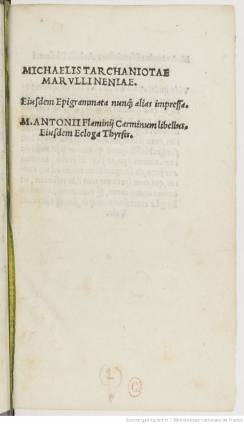 MICHAELIS TARCHANIOTAE
MARVLLI NENIAE.
Eiusdem Epigrammata nunq̃ alias impressa.
M. ANTONII Flaminij Carminum libellus.
Eiusdem Ecloga Thyrsis.
Source gallica.bnf.fr / Bibliothèque nationale de France